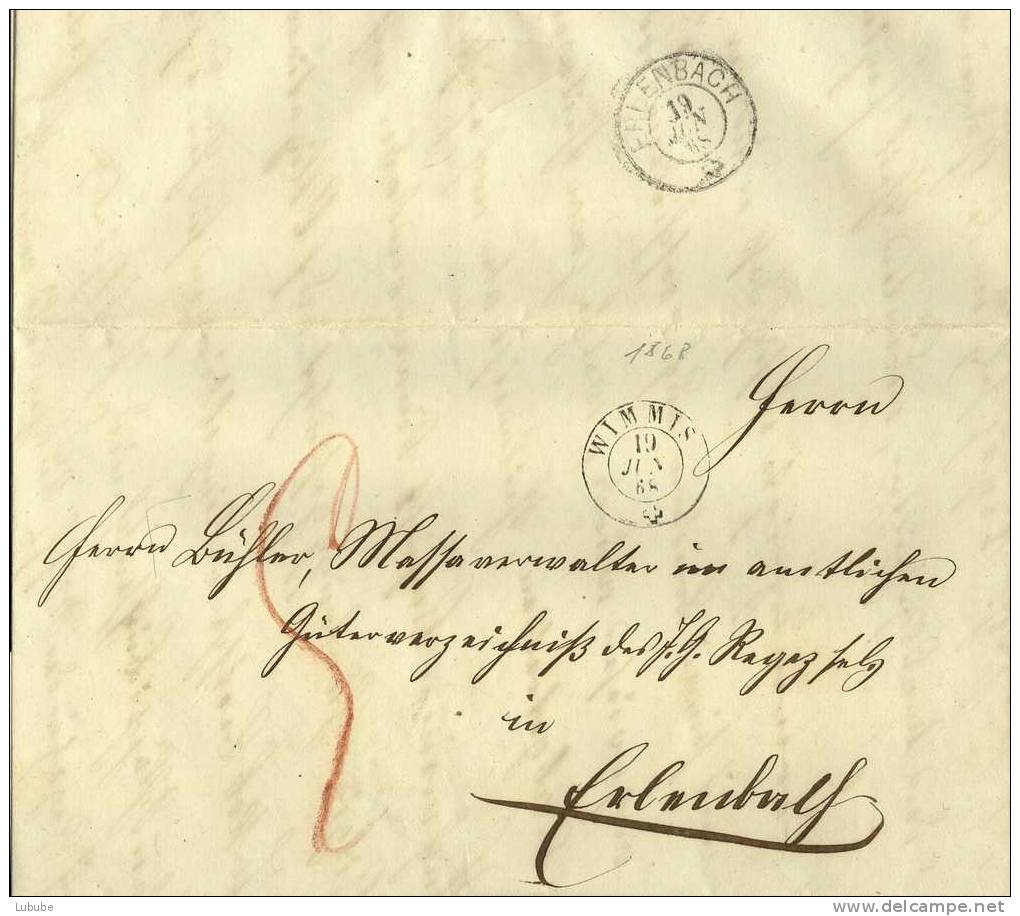 ERLENBACH
19
JUN
68
1868
Herrn
WIMMIS
19
JUN
68
Herrn Bühler, Massaverwalter im amtlichen
Güterverzeichniß des J. G. Regez sel.
in
Erlenbach
Lubube
delcampe.net